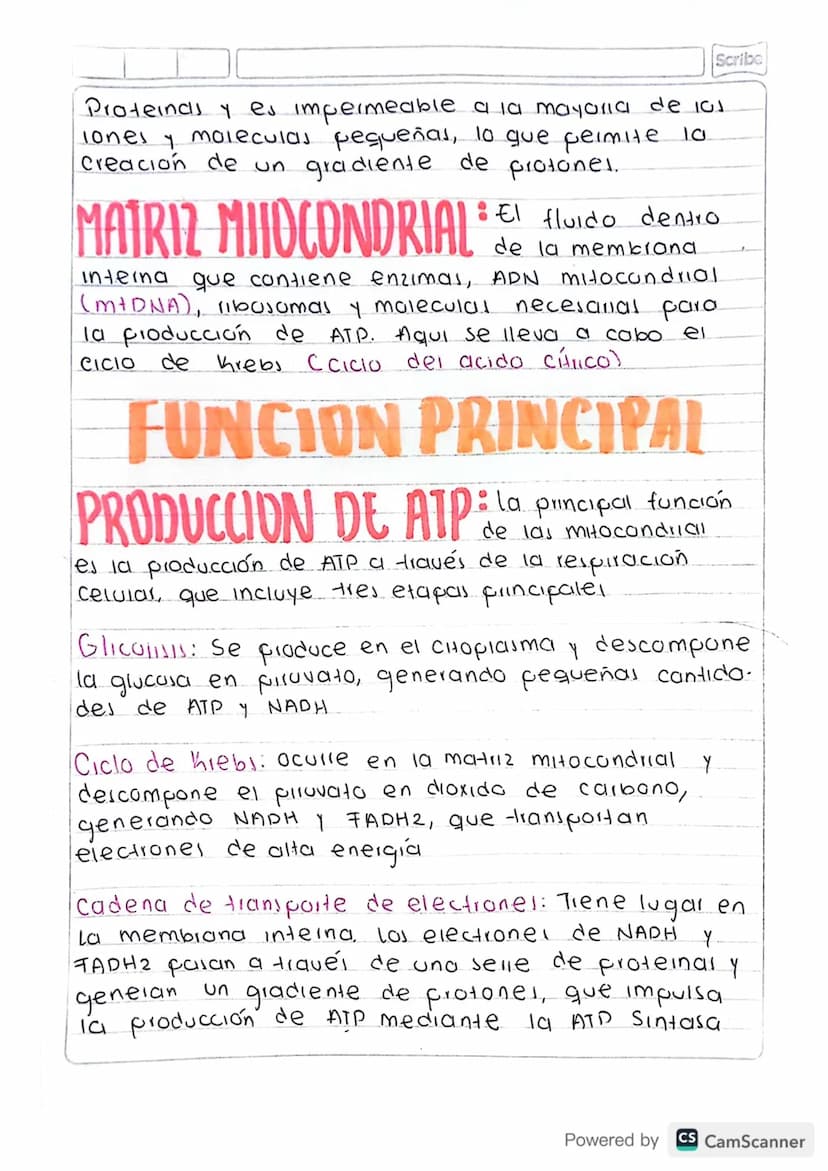 Scribe
Proteinas y es impermeable a la mayoria de los
iones y moleculas pequeñas, lo que permite la
creación de un gradiente de protones.
MATRIZ MITOCONDRIAL: El fluido dentro
de la membrana
interna que contiene enzimas, ADN mitocondrial
(mtDNA), ribosomas y moleculas necesarias para
la producción de ATP. Aqui se lleva a cabo el
ciclo de Krebs (ciclo del acido cítrico)
FUNCION PRINCIPAL
PRODUCCION DE ATP: la principal función
de las mitocondrias
es la producción de ATP a través de la respiración
celular, que incluye tres etapas principales
Glicolisis: Se produce en el citoplasma y descompone
la glucosa en piruvato, generando pequeñas cantida-
des de ATP y NADH
Ciclo de Krebs: ocurre en la matriz mitocondrial y
descompone el piruvato en dioxido de carbono,
generando NADH y FADH2, que transportan
electrones de alta energía
Cadena de transporte de electrones: Tiene lugar en
la membrana interna. Los electrones de NADH y
FADH2 pasan a través de una serie de proteinas y
generan un gradiente de protones, que impulsa
la producción de ATP mediante la ATP Sintasa
Powered by CS CamScanner